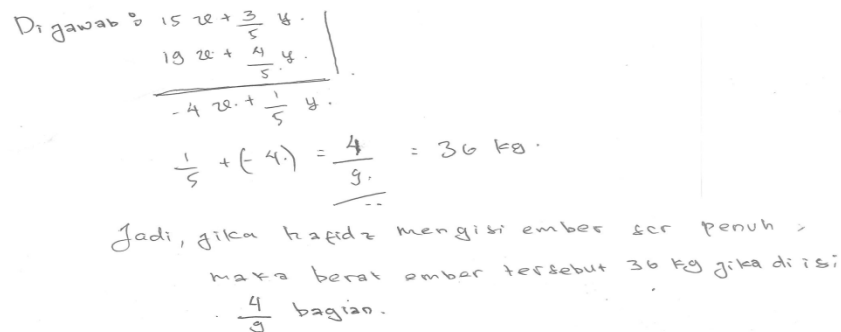 Di jawab : 15 x + 3/5 y.
19 x + 4/5 y.
- 4 x. + 1/5 y.
1/5 + (- 4.) = 4/9. = 36 kg.
Jadi, jika hafidz mengisi ember scr penuh,
maka berat ember tersebut 36 kg jika di isi
4/9 bagian.